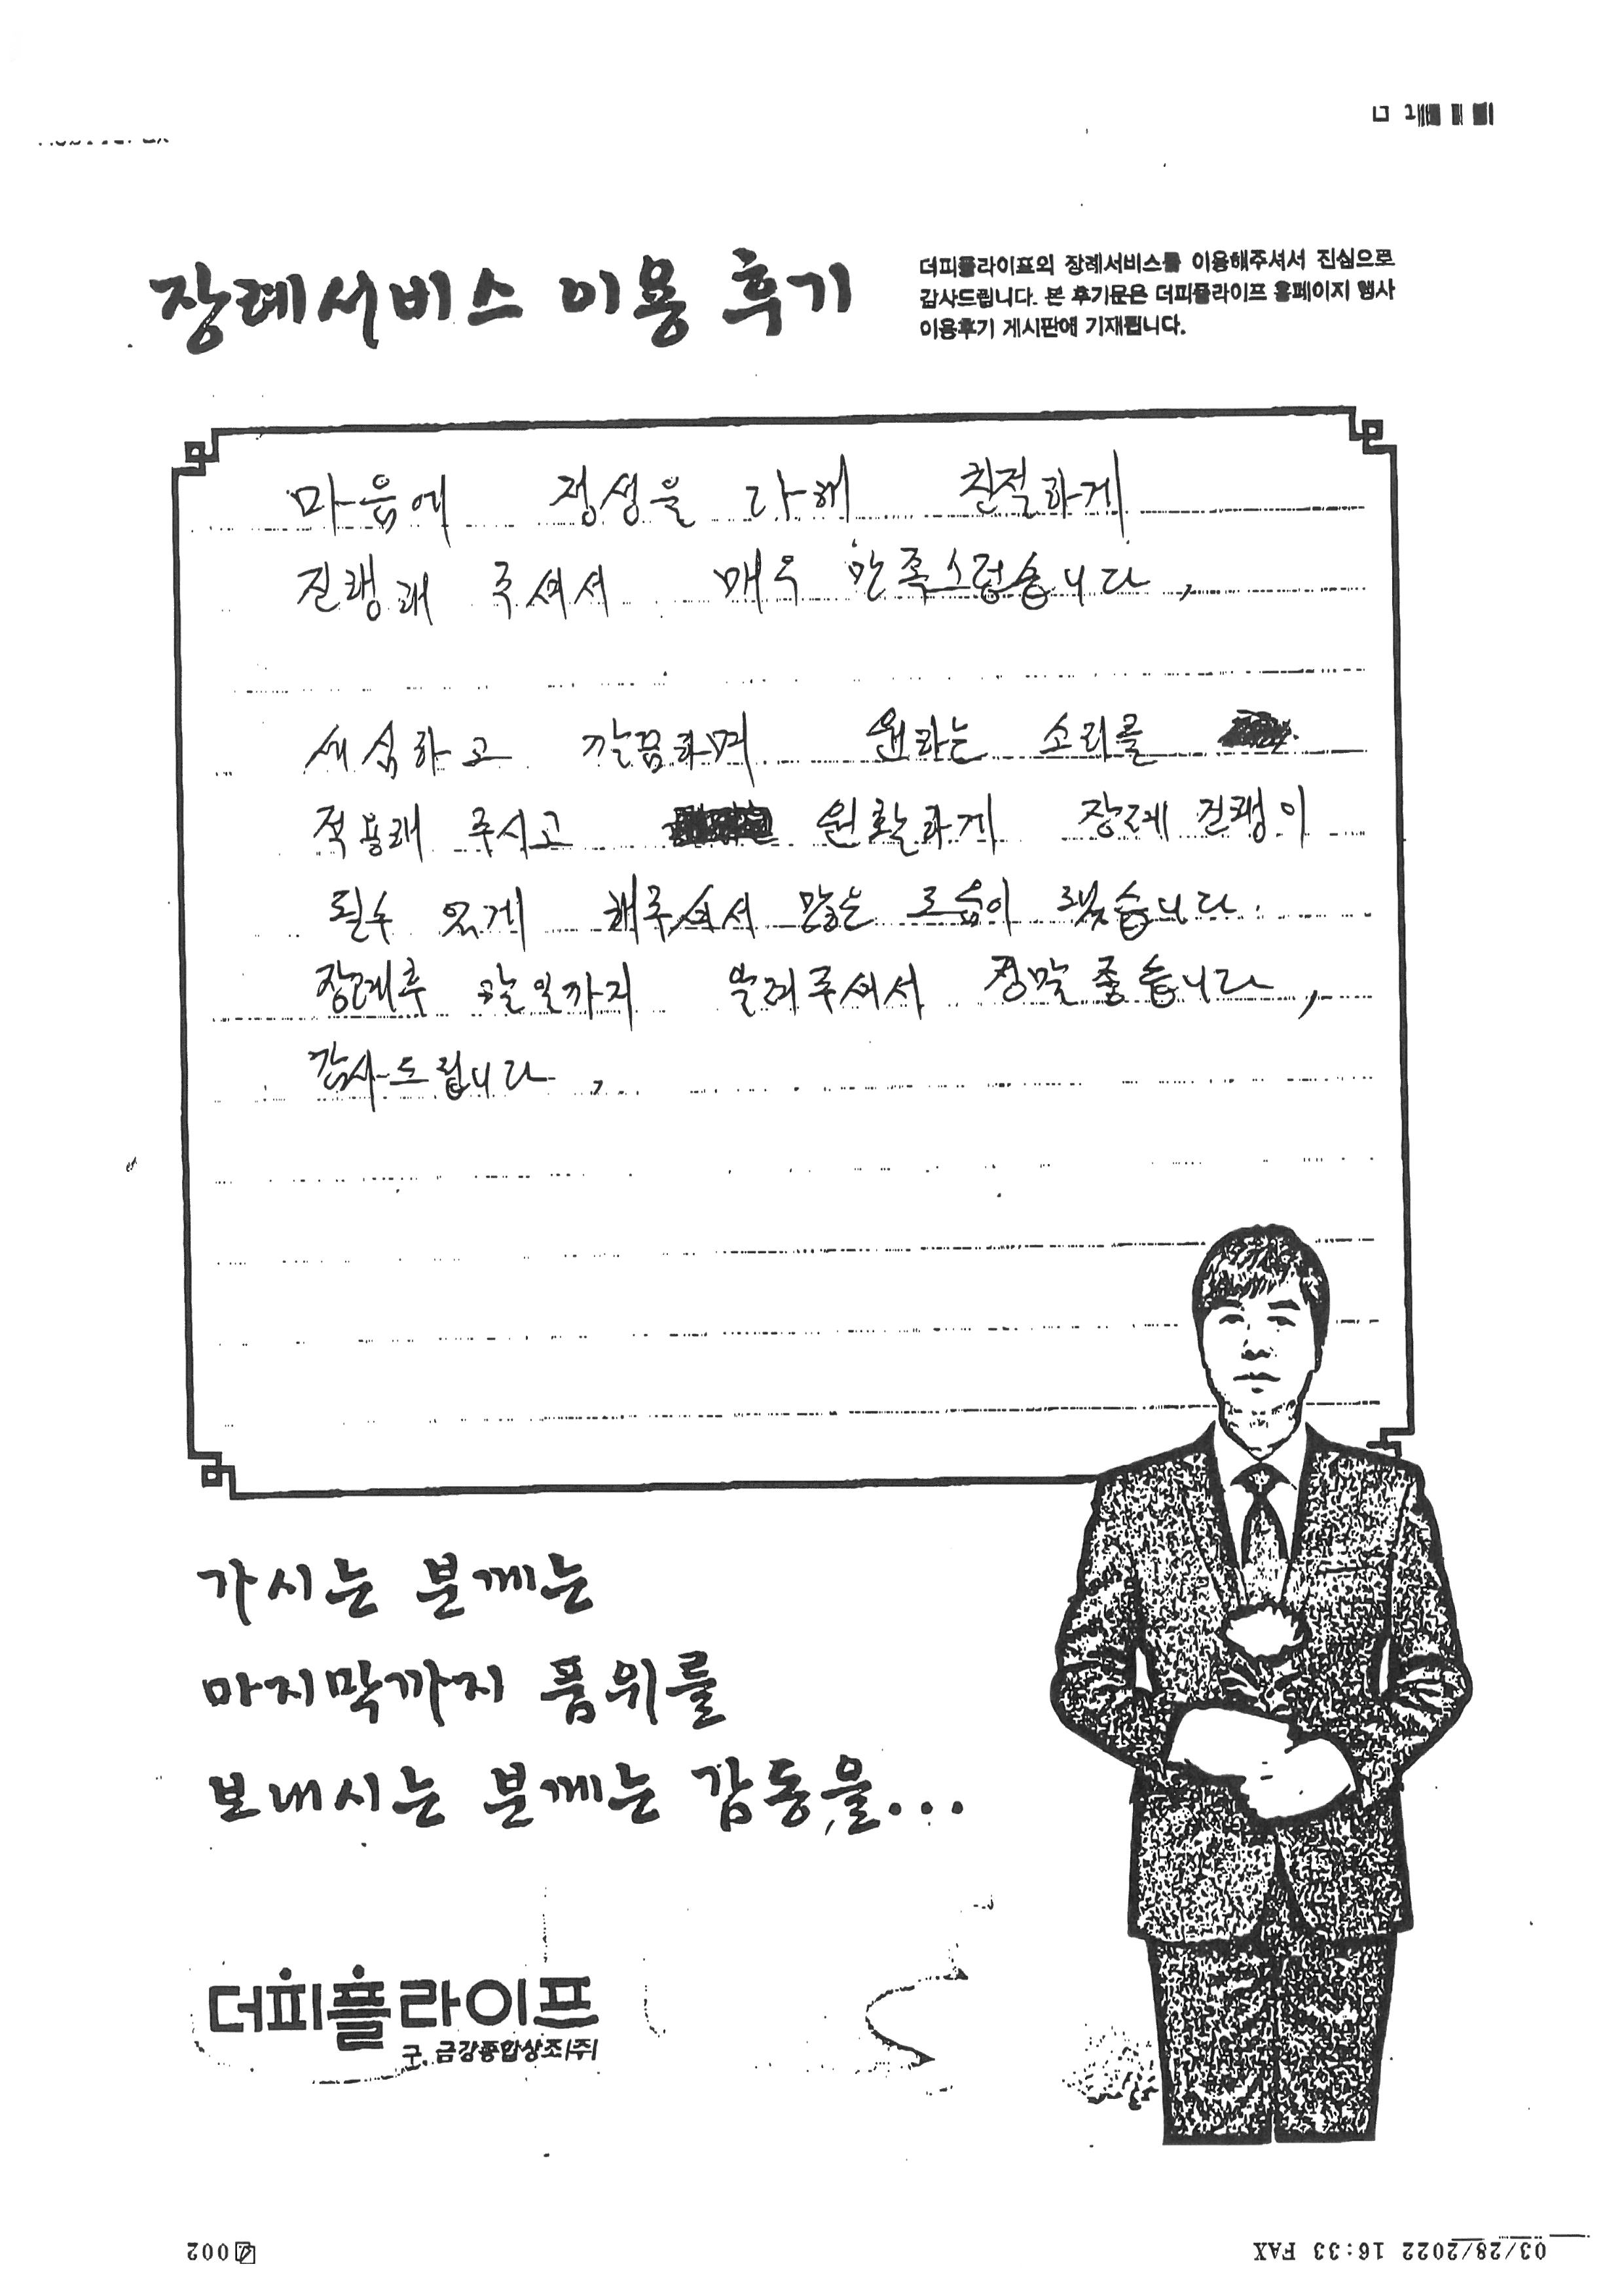 장례서비스 이용 후기
더피플라이프의 장례서비스를 이용해주셔서 진심으로
감사드립니다. 본 후기문은 더피플라이프 홈페이지 행사
이용후기 게시판에 기재됩니다.
마음에 정성을 다해 친절하게
진행해 주셔서 매우 만족스럽습니다.
세심하고 깔끔하며 원하는 소리를
적용해 주시고 원활하게 장례 진행이
될수 있게 해주셔서 많은 도움이 됐습니다.
장례후 할일까지 알려주셔서 정말 좋습니다,
감사드립니다.
가시는 분께는
마지막까지 품위를
보내시는 분께는 감동을...
더피플라이프
구. 금강종합상조(주)
03/28/2022 16:33 FAX
002